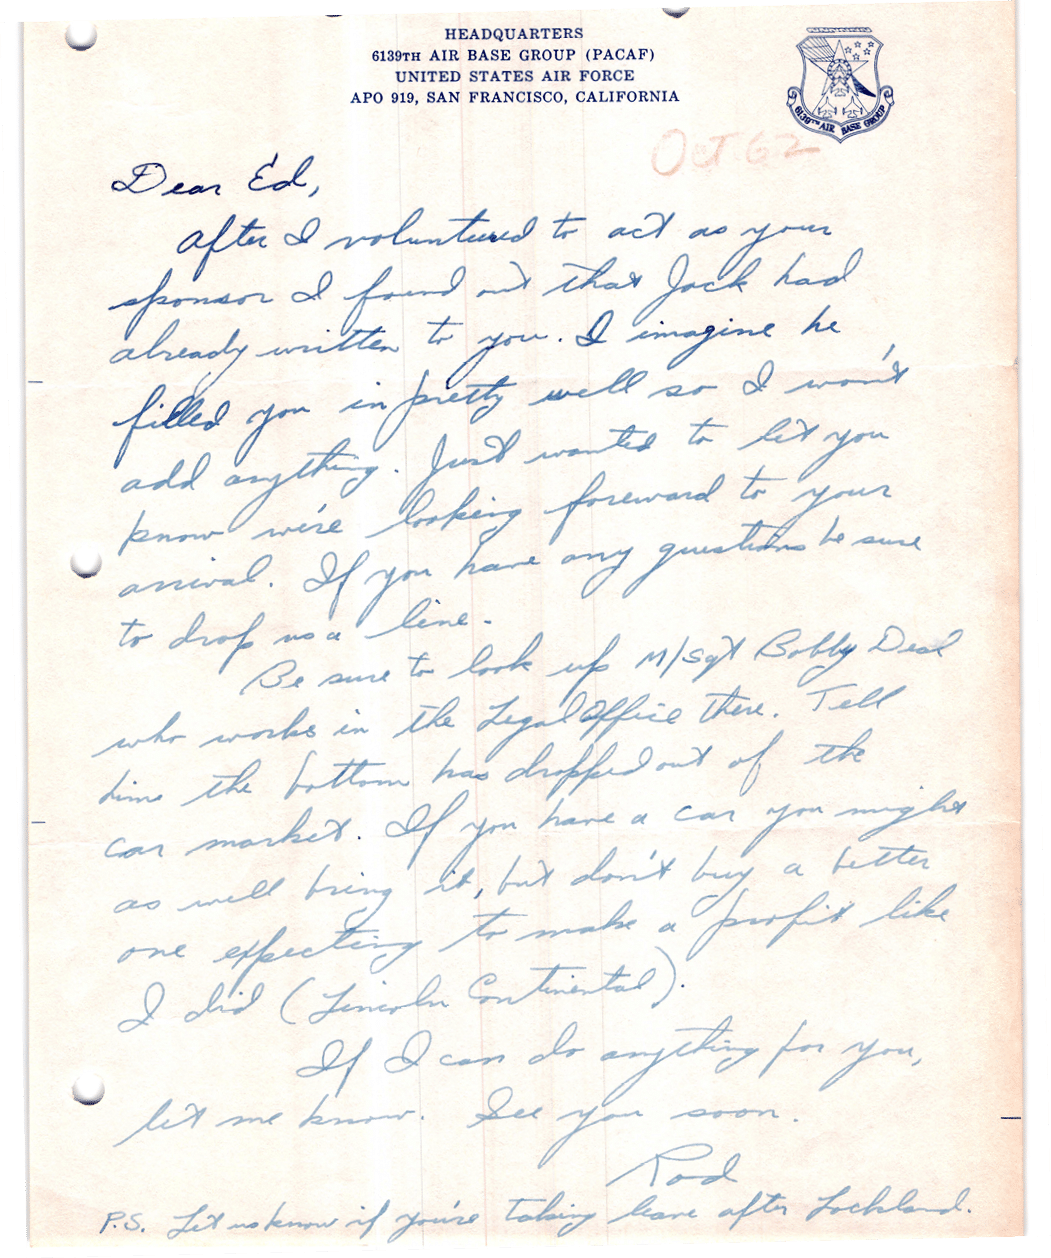 HEADQUARTERS
6139TH AIR BASE GROUP (PACAF)
UNITED STATES AIR FORCE
APO 919, SAN FRANCISCO, CALIFORNIA
6139TH AIR BASE GROUP
Oct 62
Dear Ed,
After I volunteered to act as your
sponsor I found out that Jack had
already written to you. I imagine he
filled you in pretty well so I won't
add anything. Just wanted to let you
know we're looking foreward to your
arrival. If you have any questions be sure
to drop us a line.
Be sure to look up M/Sgt Bobby Deal
who works in the Legal Office there. Tell
him the bottom has dropped out of the
car market. If you have a car you might
as well bring it, but don't buy a better
one expecting to make a profit like
I did (Lincoln Continental).
If I can do anything for you,
let me know. See you soon.
Rod
P.S. Let us know if you're taking leave after Lackland.